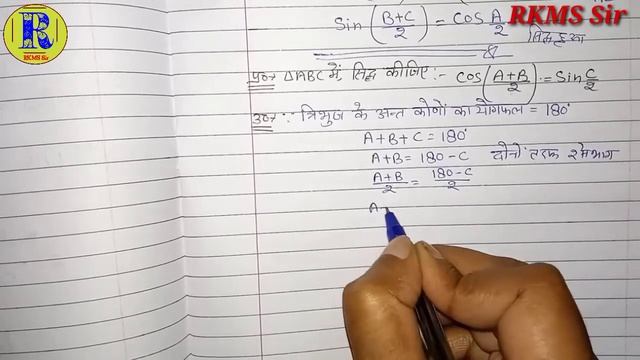 R
RKMS Sir
RKMS Sir
Sin(B+C/2) = cos A/2
सिद्ध हुआ
प्र०→ ΔABC में, सिद्ध कीजिए:- cos(A+B/2) = Sin C/2
उ०→ ∵ त्रिभुज के अन्त कोणों का योगफल = 180°
A+B+C = 180°
A+B = 180-C दोनों तरफ 2 से भाग
A+B/2 = 180-C/2
A